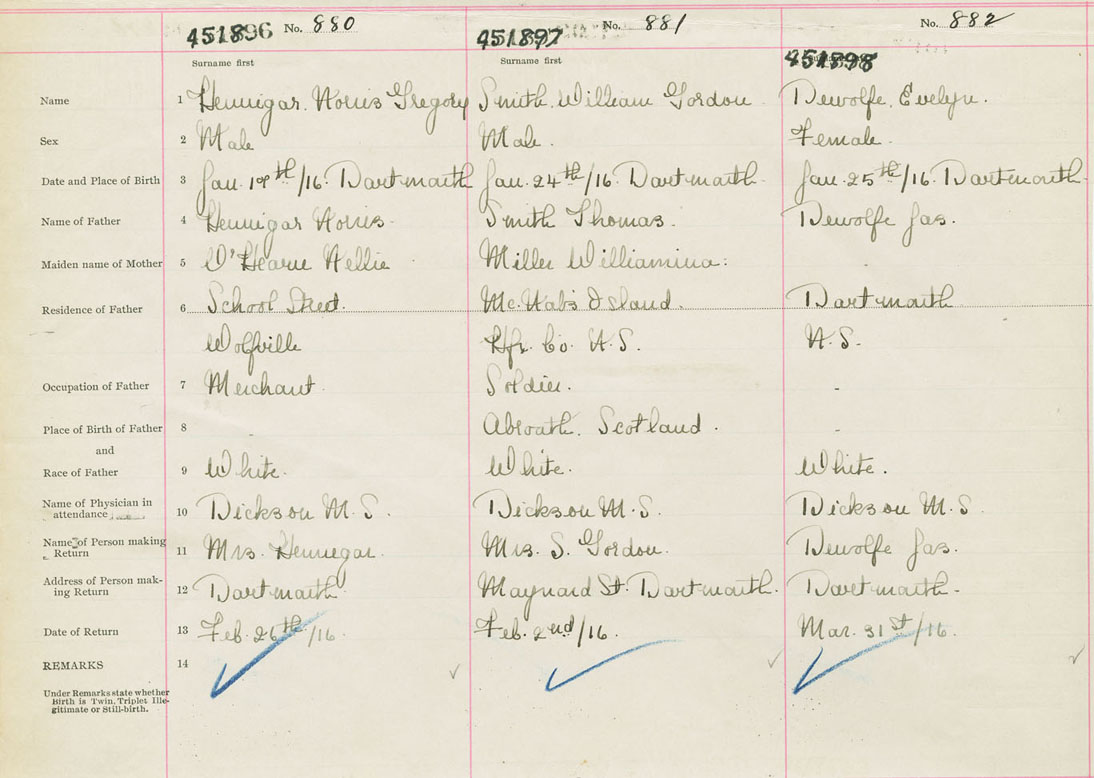 451896 No. 880 451897 No. 881 451898 No. 882
Surname first Surname first
Name 1 Hennigar. Norris Gregory Smith. William Gordon Dewolfe. Evelyn.
Sex 2 Male Male. Female.
Date and Place of Birth 3 Jan. 19th/16. Dartmouth Jan. 24th/16. Dartmouth. Jan. 25th/16. Dartmouth.
Name of Father 4 Hennigar Norris. Smith Thomas. Dewolfe Jas.
Maiden name of Mother 5 O'Hearn Nellie Miller Williamina. -
Residence of Father 6 School Street. Mc.Nab's Island. Dartmouth
Wolfville Hfx. Co. N.S. N.S.
Occupation of Father 7 Merchant. Soldier. -
Place of Birth of Father 8 - Abroath. Scotland. -
and
Race of Father 9 White. White. White.
Name of Physician in
attendance 10 Dickson M.S. Dickson M.S. Dickson M.S.
Name of Person making
Return 11 Mrs. Hennigar. Mrs. S. Gordon. Dewolfe Jas.
Address of Person mak-
ing Return 12 Dartmouth. Maynard St. Dartmouth. Dartmouth.
Date of Return 13 Feb. 26th/16. Feb. 2nd/16. Mar. 31st/16.
REMARKS 14
Under Remarks state whether
Birth is Twin, Triplet Ille-
gitimate or Still-birth.